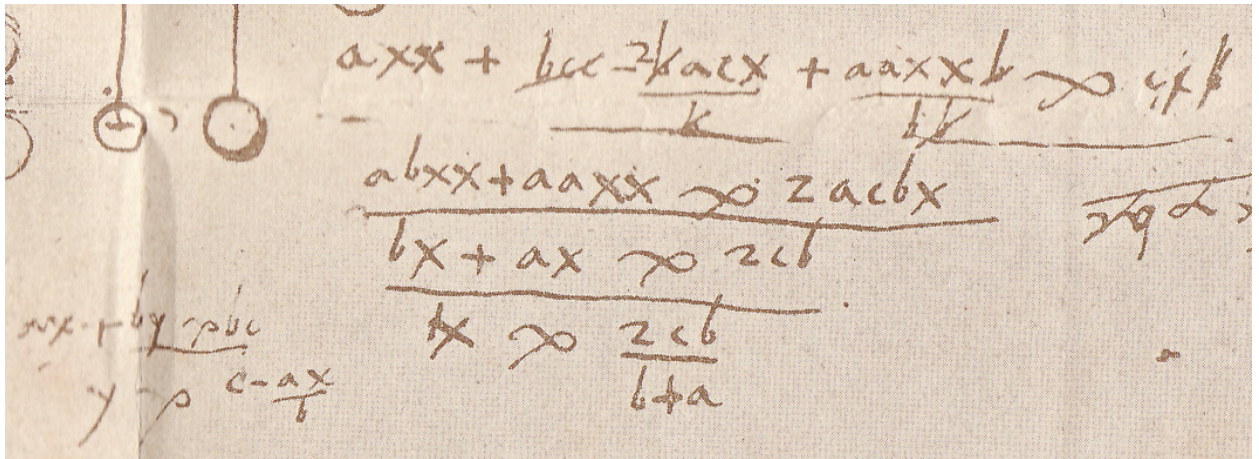 axx + bcc - 2bacx/b + aaxxb/bb ∞ ccb
abxx + aaxx ∞ 2acbx
bx + ax ∞ 2cb
x ∞ 2cb/b+a
ax + by ∞ bc
y ∞ c - ax/b